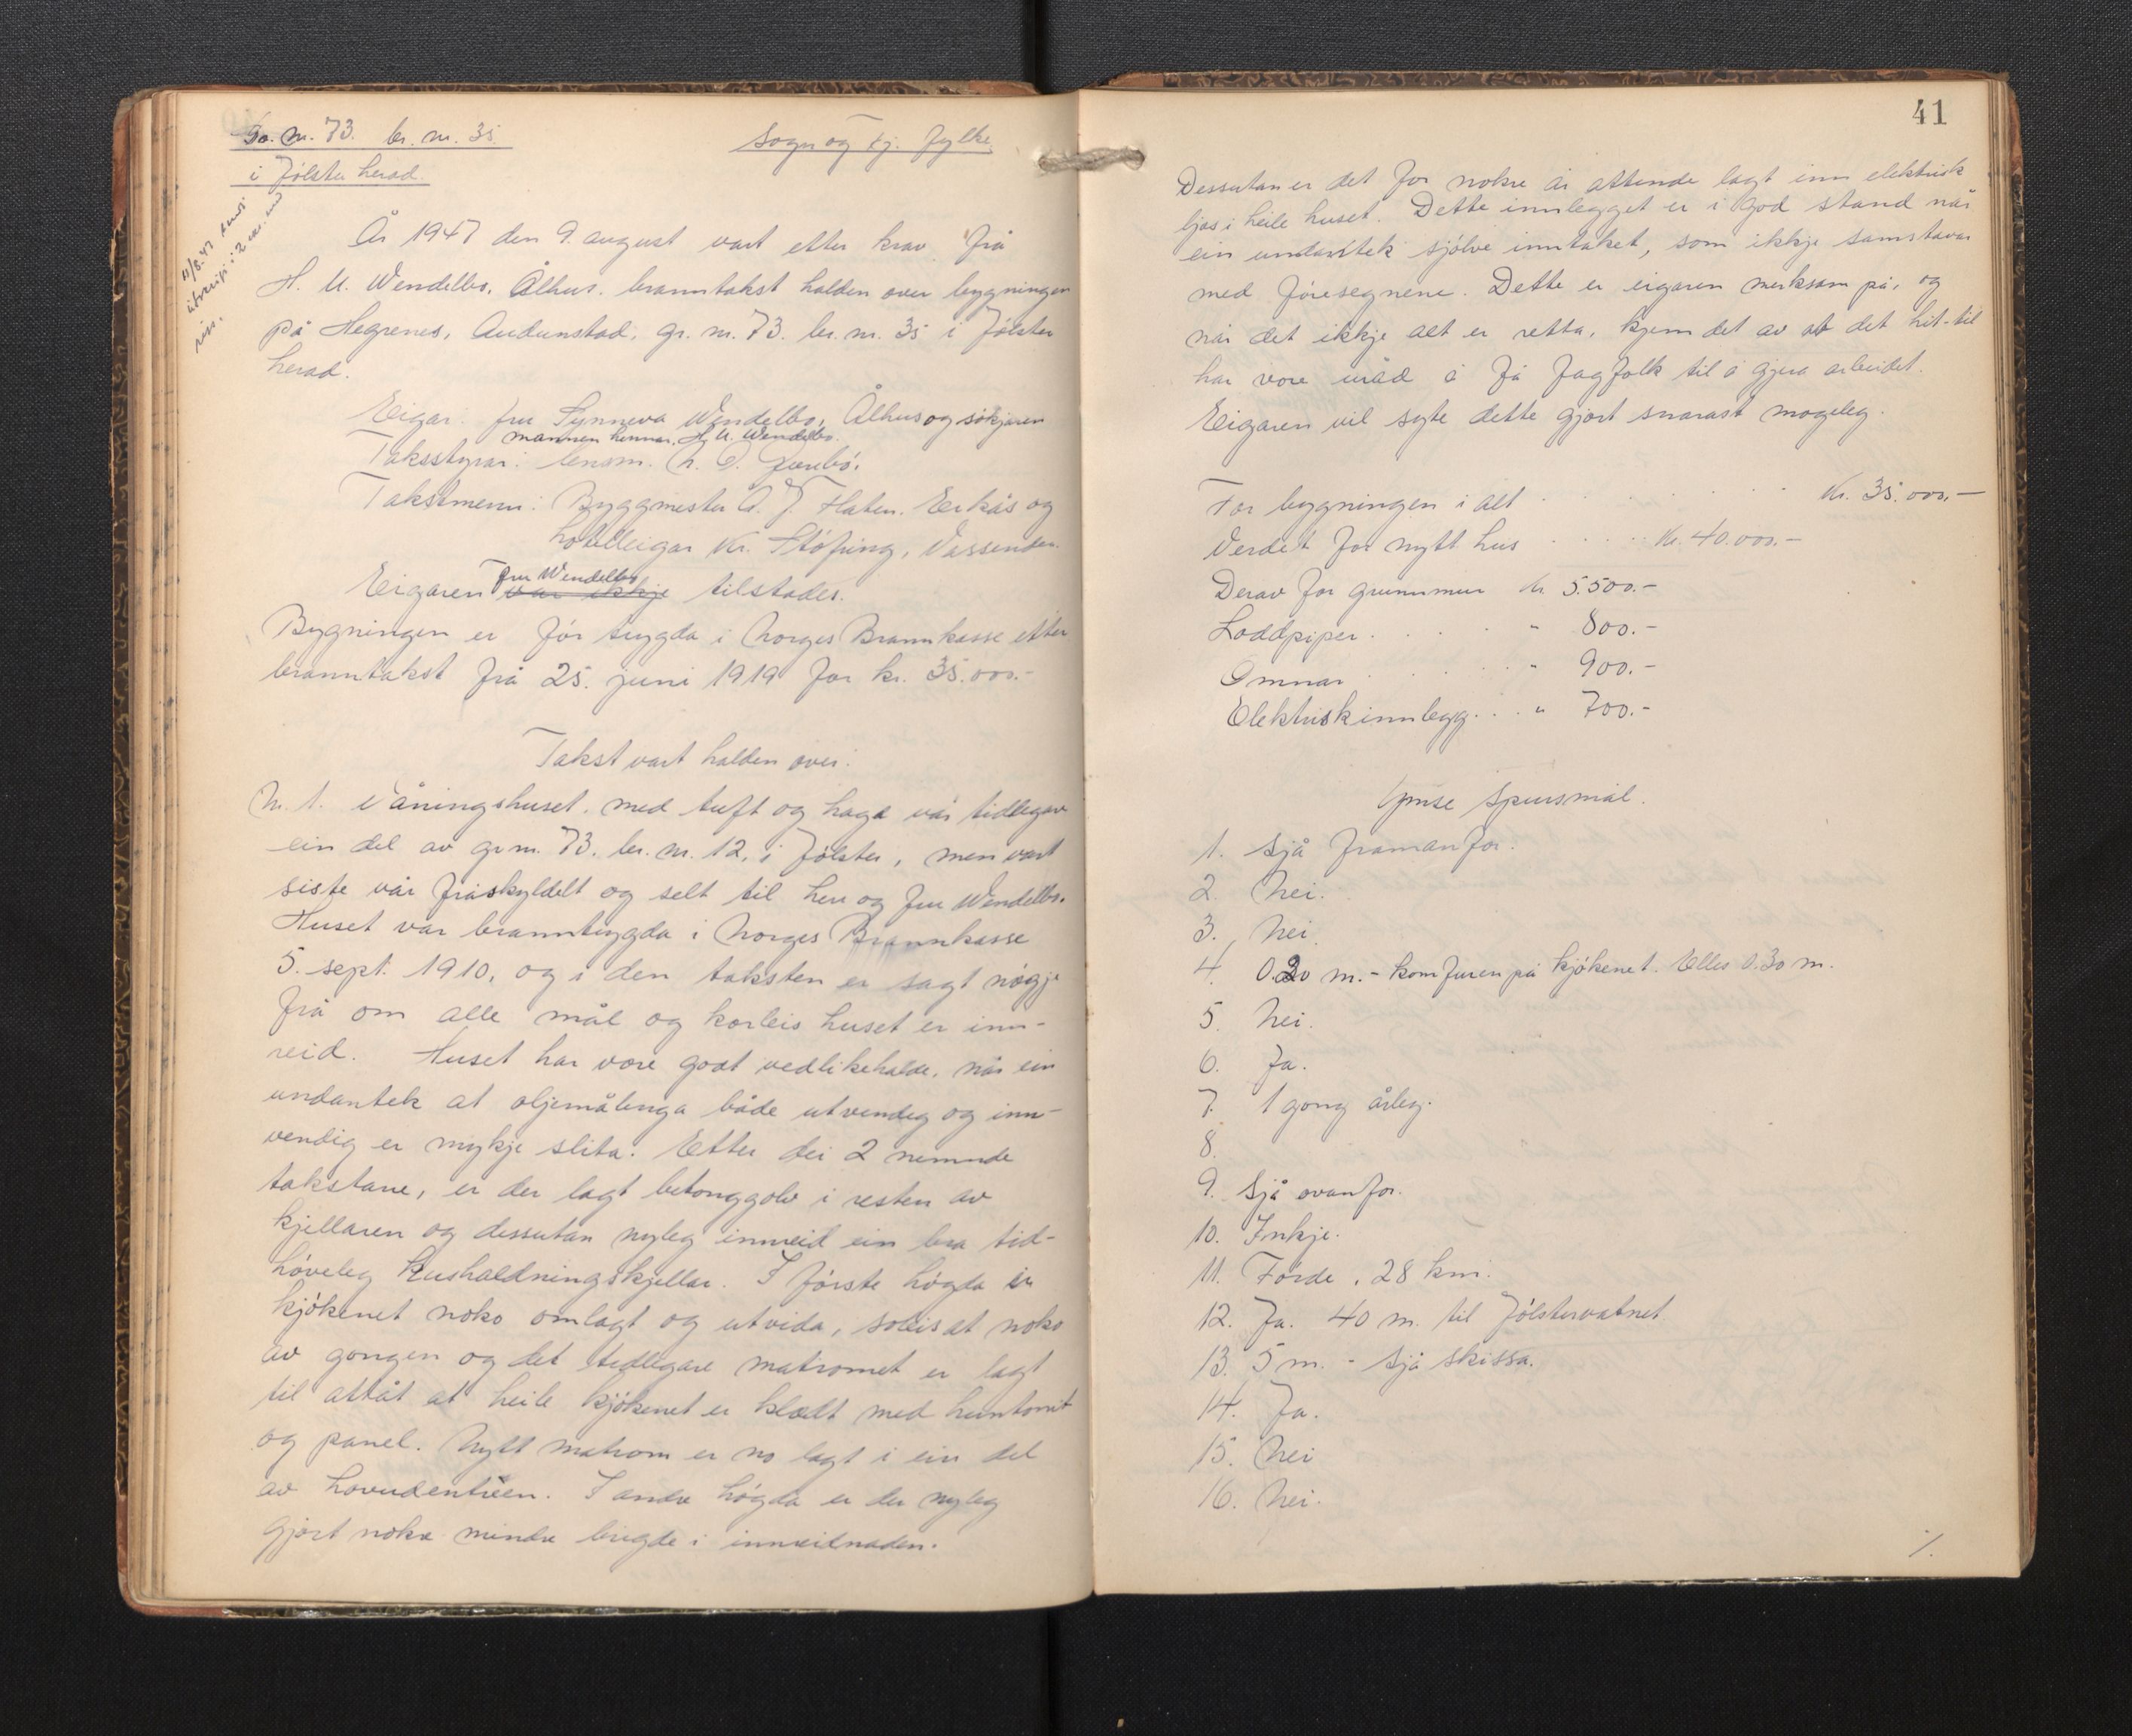 Gr. nr. 73. br. nr. 35.
Sogn og Fj. fylke
i Jölster herad.
11/8.47 sendt
utskrift i 2 eks. med
riss.
År 1947 den 9. august vart etter krav frå
H. U. Wendelbo, Ålhus. branntakst halden over bygningen
på Hegrenes, Audunstad, gr. nr. 73. br. nr. 35 i Jölster
herad.
Eigar: fru Synneva Wendelbo, Ålhus og søkjaren
mannen hennar, H. U. Wendelbo.
Takststyrar: lensm.
Takstmenn: Byggmester A. J. Flaten. Eikås og
hotelleigar Kr. Støfring, Vassenden.
Eigaren fru Wendelbo var ikkje tilstades.
Bygningen er för trygda i Norges Brannkasse etter
branntakst frå 25. juni 1919 for kr. 35.000.-
Takst vart halden over:
Nr. 1. Våningshuset. med tuft og hage var tidlegare
ein del av gr. nr. 73. br. nr. 12, i Jölster, men vart
siste vår fråskyldelt og selt til herr og fru Wendelbo.
Huset var branntrygda i Norges Brannkasse
5. sept. 1910, og i den taksten er sagt nögje
frå om alle mål og korleis huset er inn-
reid. Huset har vore godt vedlikehalde, når ein
undantek at oljemålinga både utvendig og inn-
vendig er mykje slita. Etter dei 2 nemnde
takstane, er der lagt betonggolv i resten av
kjellaren og dessutan nyleg innreid ein bra tid-
höveleg hushaldningskjellar. I förste högda er
kjökenet noko omlagt og utvida, soleis at noko
av gongen og det tidlegare matromet er lagt
til attåt at heile kjökenet er klædt med huntonit
og panel. Nytt matrom er no lagt i ein del
av hovudentréen. I andre högda er der nyleg
gjort nokre mindre brigde i innreidnaden.
41
Dessutan er det for nokre år attende lagt inn elektrisk
ljos i heile huset. Dette innlegget er i god stand når
ein undantek sjölve inntaket, som ikkje samstavar
med föresegnene. Dette er eigaren merksam på, og
når det ikkje alt er retta, kjem det av at det hit-til
har vore uråd å få fagfolk til å gjera arbeidet.
Eigaren vil syte dette gjort snarast mogeleg.
For bygningen i alt . . . . . . Kr. 35.000,-
Verdet for nytt hus . . . . . kr. 40.000.-
Derav for grunnmur kr. 5.500.-
Loddpiper . . . . . " 800.-
Omnar . . . . " 900.-
Elektrisk innlegg . . . " 700.-
Ymse spursmål.
1. Sjå framanfor.
2. Nei.
3. Nei.
4. 0.20 m. - komfuren på kjökenet. Elles 0.30 m.
5. Nei.
6. Ja.
7. 1 gong årleg.
8.
9. Sjå ovanfor.
10. Inkje.
11. Förde, 28 km.
12. Ja. 40 m. til Jölstervatnet.
13. 5 m. - Sjå skissa.
14. Ja.
15. Nei
16. Nei.
./.